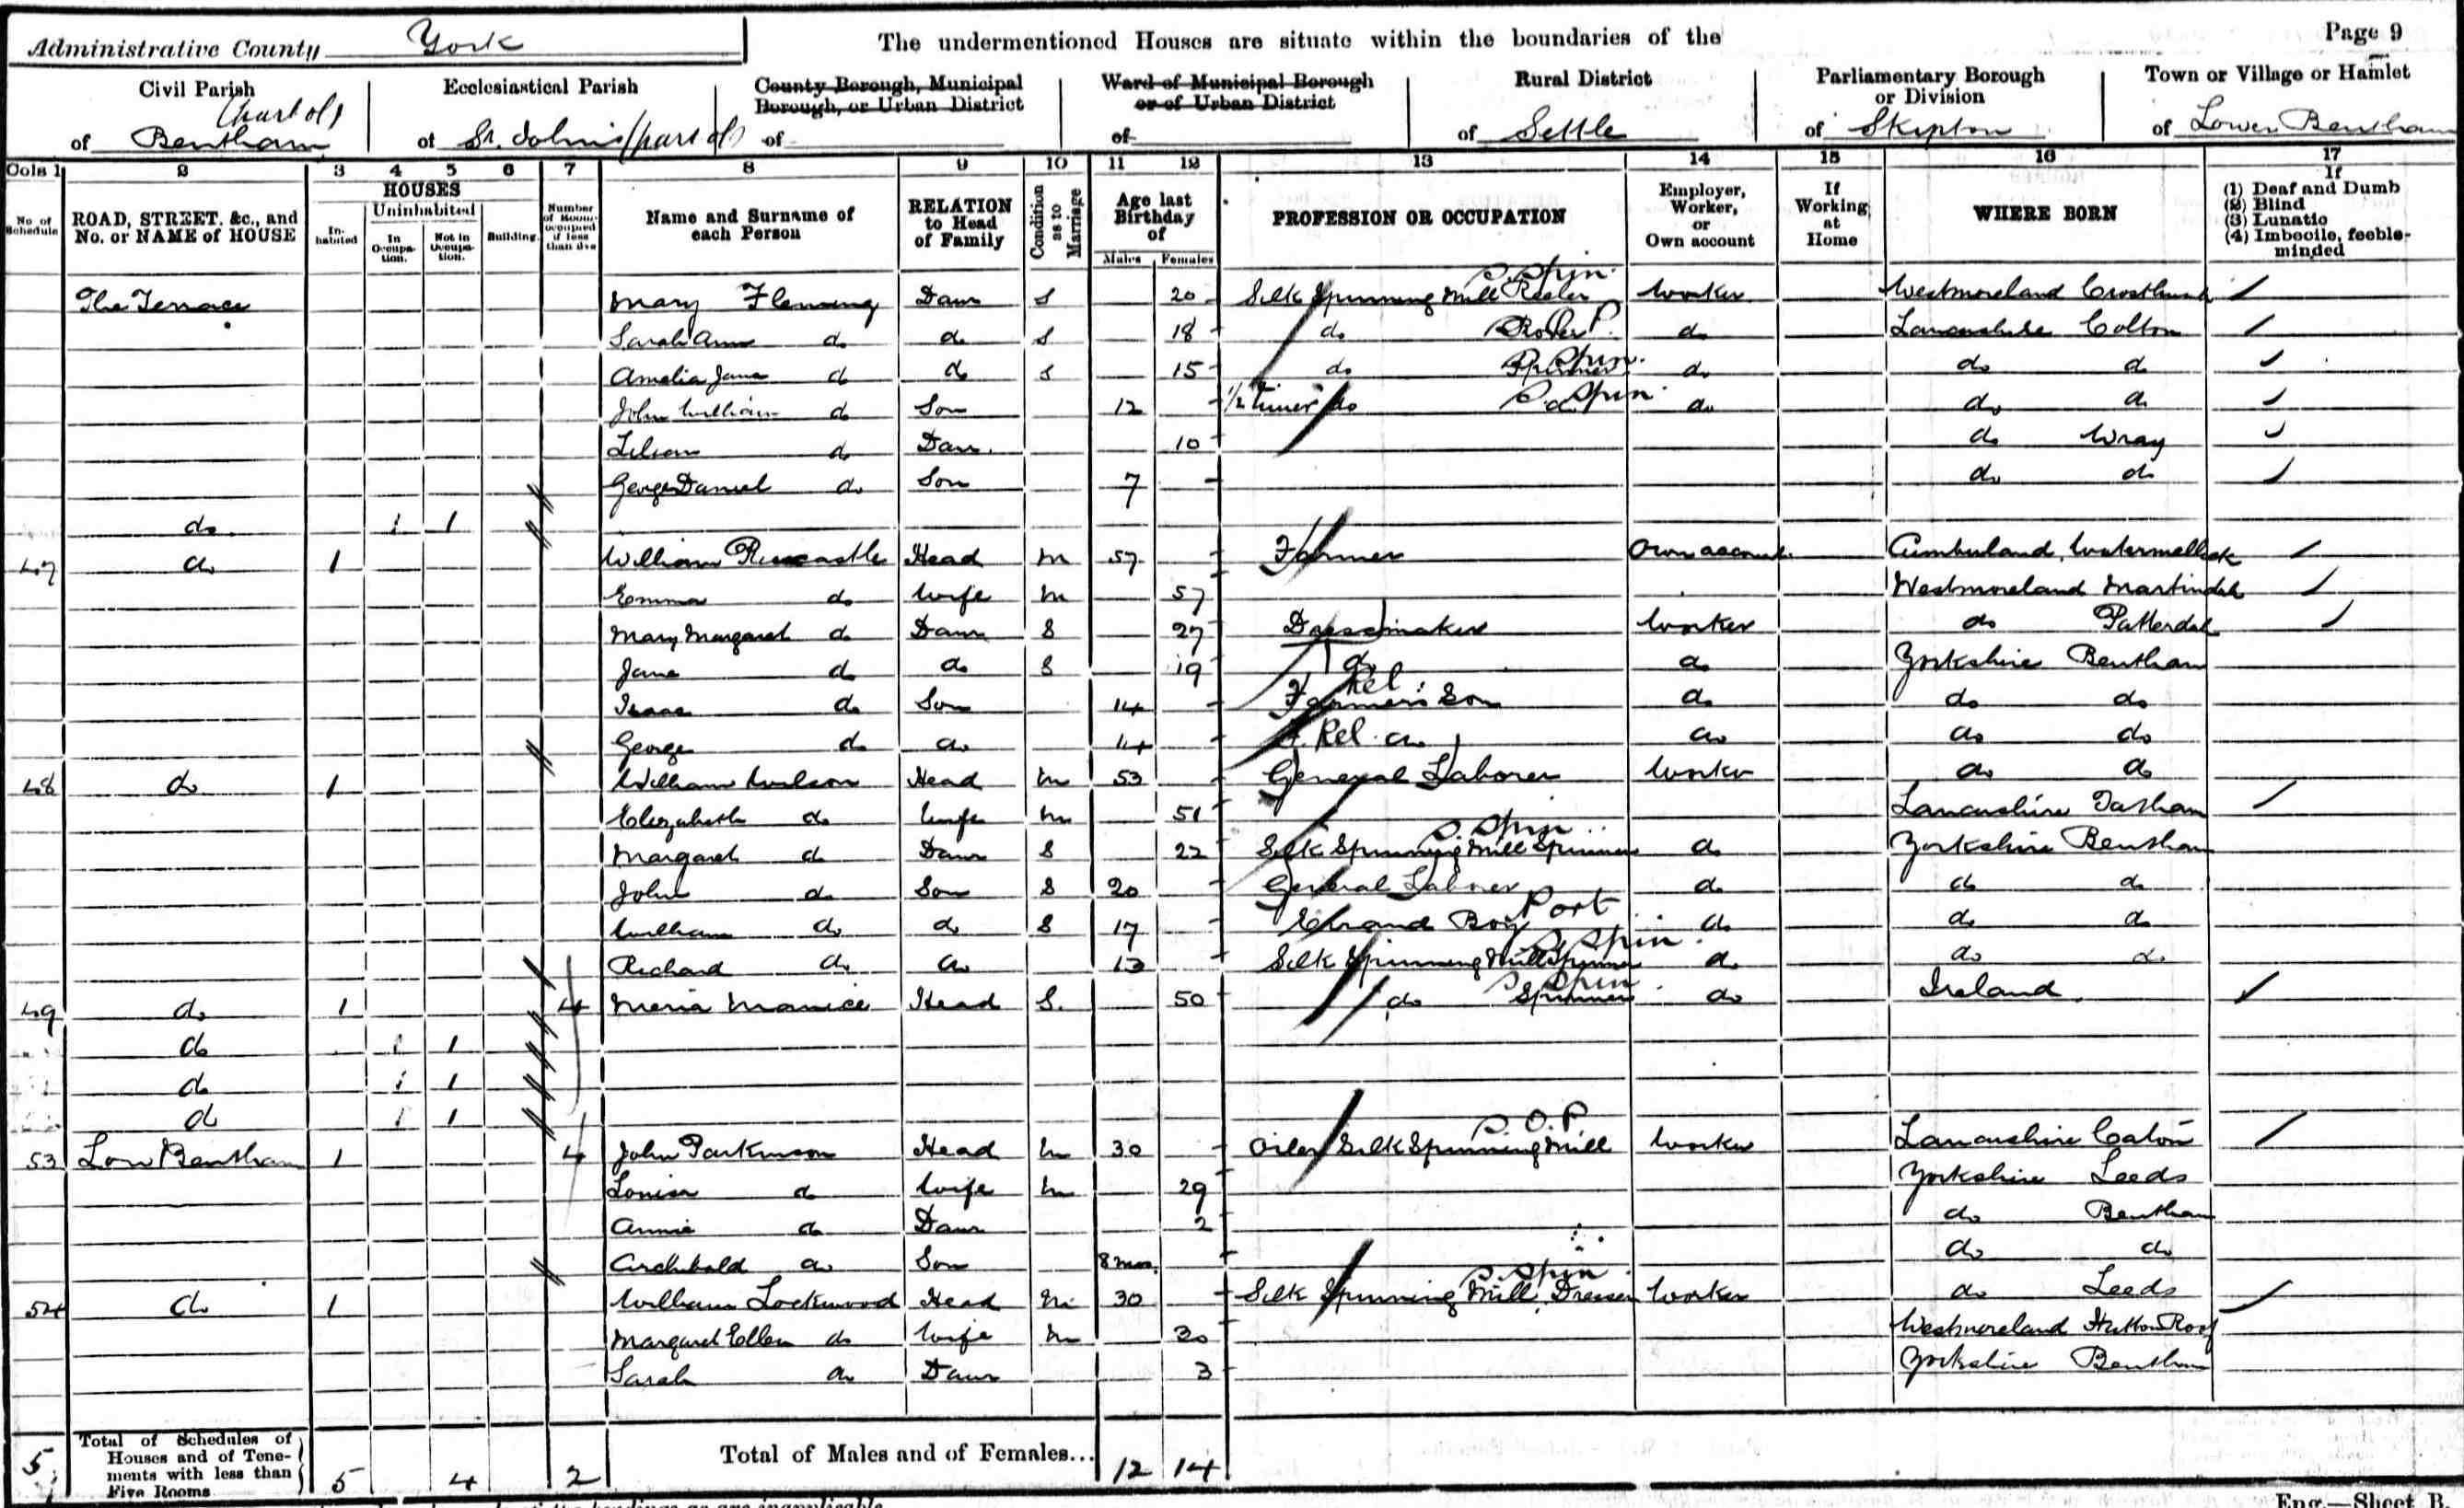 Administrative County York The undermentioned Houses are situate within the boundaries of the Page 9
Civil Parish Ecclesiastical Parish County Borough, Municipal Borough, or Urban District Ward of Municipal Borough or of Urban District Rural District Parliamentary Borough or Division Town or Village or Hamlet
of Bentham (part of) of St. John's (part of) of of of Settle of Skipton of Lower Bentham
Cols 1 2 3 4 5 6 7 8 9 10 11 12 13 14 15 16 17
No. of Schedule ROAD, STREET, &c., and No. or NAME of HOUSE HOUSES Inhabited Uninhabited In Occupation. Not in Occupation. Building Number of Rooms occupied if less than five Name and Surname of each Person RELATION to Head of Family Condition as to Marriage Age last Birthday of Males Females PROFESSION OR OCCUPATION Employer, Worker, or Own account If Working at Home WHERE BORN If (1) Deaf and Dumb (2) Blind (3) Lunatic (4) Imbecile, feeble-minded
The Terrace Mary Fleming Daur S 20 Silk Spinning Mill Reeler S. Spin. Worker Westmoreland
Sarah Ann do do S 18 do do Lancashire Colton
Amelia Jane do do S 15 do Spinner Spin. do do do
John William do Son 12 1/2 Timer do do S. Spin do do do
Lilian do Daur. 10 do Wray
George Daniel do Son 7 do do
do 1 1
47 do 1 William Head M 57 Farmer Own account Cumberland, Watermellock
Emma do Wife M 57 Westmoreland Martindale
Mary Margaret do Daur S 27 Dressmaker Worker do Patterdale
Jane do do S 19 do do Yorkshire Bentham
Isaac do Son 14 Farmer's Son Rel. do do do
George do do 14 do Rel. do do do
48 do 1 William Wilson Head M 53 General Laborer Worker do do
Elizabeth do Wife M 51 Lancashire Tatham
Margaret do Daur S 22 Silk Spinning Mill Spinner S. Spin do Yorkshire Bentham
John do Son S 20 General Laborer do do do
William do do S 17 Errand Boy Port do do do
Richard do do 13 Silk Spinning Mill Spinner S. Spin. do do do
49 do 1 4 Head S. 50 do Spinner S. Spin. do Ireland
do 1 1
do 1 1
do 1 1
53 Low Bentham 1 4 John Parkinson Head M 30 Oiler Silk Spinning Mill S. O. P. Worker Lancashire Caton
Louisa do Wife M 29 Yorkshire Leeds
Annie do Daur 2 do Bentham
Archibald do Son 8 mos. do do
54 do 1 William Lockwood Head M 30 Silk Spinning Mill Dresser S. Spin. Worker do Leeds
Margaret Ellen do Wife M 30 Westmoreland Hutton Roof
Sarah do Daur 3 Yorkshire Bentham
5 Total of Schedules of Houses and of Tenements with less than Five Rooms 5 4 2 Total of Males and of Females... 12 14
Eng.—Sheet B